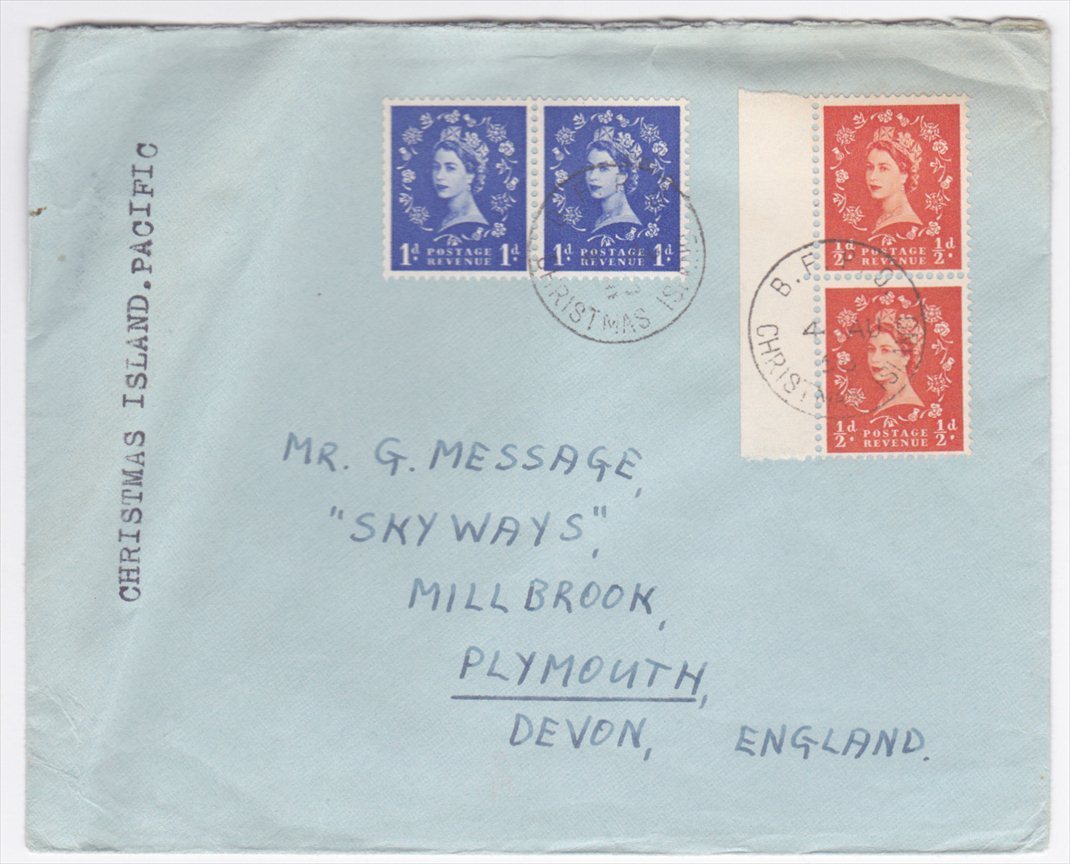 CHRISTMAS ISLAND.PACIFIC
1d POSTAGE REVENUE 1d
1d POSTAGE REVENUE 1d
CHRISTMAS
½d POSTAGE REVENUE ½d
½d POSTAGE REVENUE ½d
B.F.P.O
4 AU
CHRISTMAS ISLAND
MR. G. MESSAGE,
"SKYWAYS",
MILLBROOK,
PLYMOUTH,
DEVON, ENGLAND.